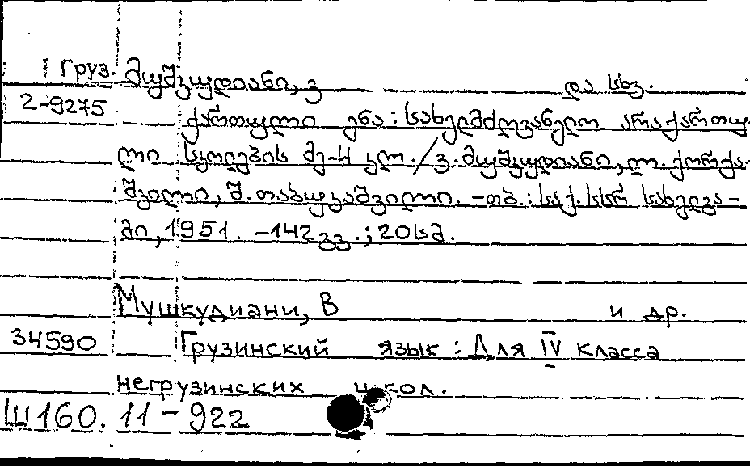 Груз. მუშკუდიანი, ვ და სხვ.
2-9275 ქართული ენა: სახელმძღვანელო არაქართუ
ლი სკოლების მე-4 კლ./ვ. მუშკუდიანი, ლ. ქორქა
შვილი, შ. თაბუკაშვილი. -თბ.: საქ. სსრ სახელგა-
მი, 1951. -142 გვ.; 20 სმ.
Мушкудиани, В и др.
34590 Грузинский язык: Для IV класса
негрузинских школ.
Ш160.11-922